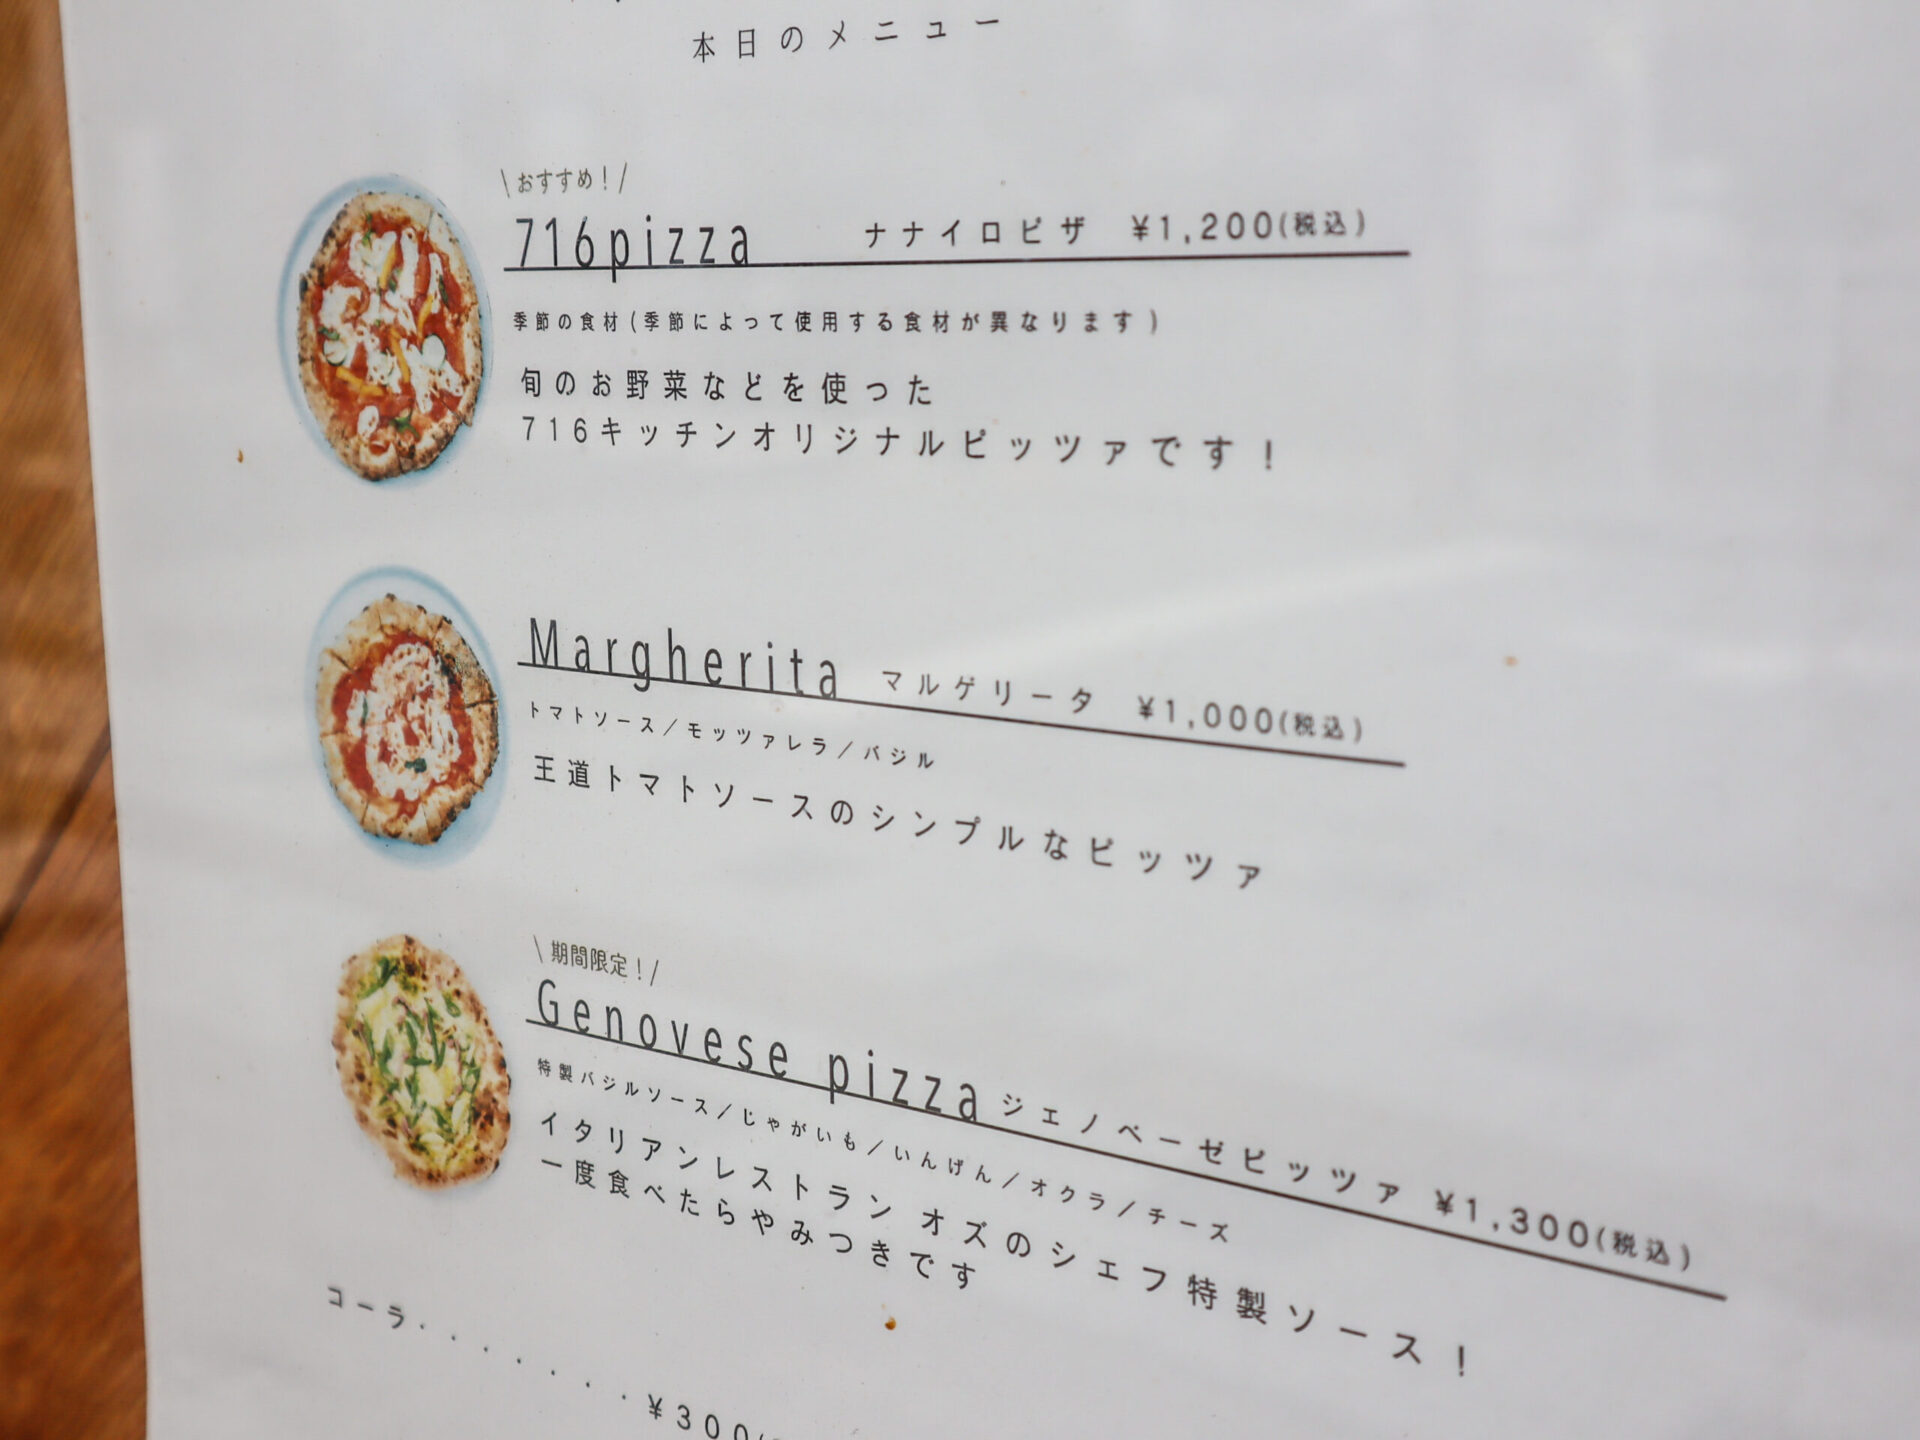 本日のメニュー
\おすすめ！/
716pizza ナナイロピザ ¥1,200(税込)
季節の食材(季節によって使用する食材が異なります)
旬のお野菜などを使った
716キッチンオリジナルピッツァです！
Margherita マルゲリータ ¥1,000(税込)
トマトソース/モッツァレラ/バジル
王道トマトソースのシンプルなピッツァ
\期間限定！/
Genovese pizza ジェノベーゼピッツァ ¥1,300(税込)
特製バジルソース/じゃがいも/いんげん/オクラ/チーズ
イタリアンレストラン オズのシェフ特製ソース！
一度食べたらやみつきです
コーラ・・・・・・・¥300(